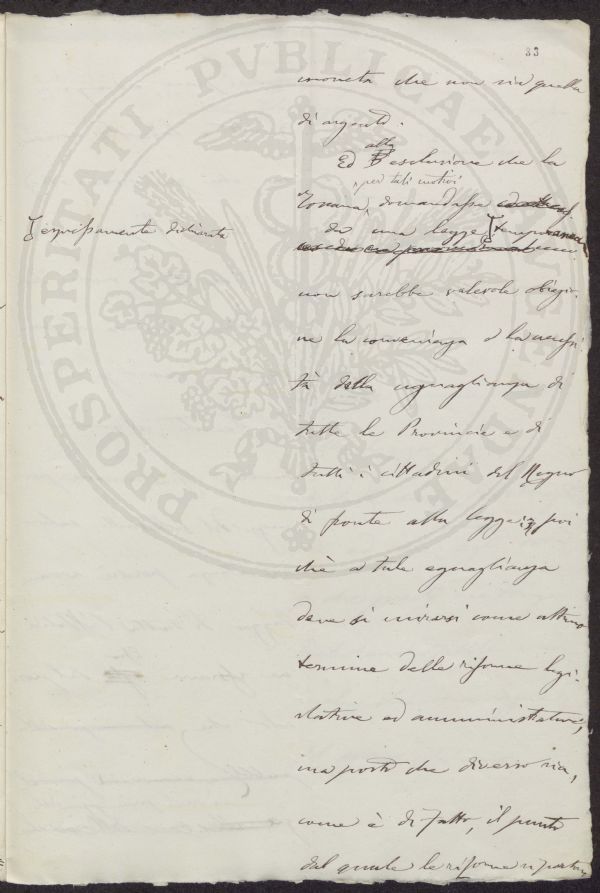 33
moneta che non sia quella
di argento.
alla
Ed esclusione che la
per tali motivi
Toscana, domandasse
do una legge temporanea
espressamente dichiarata
non sarebbe valevole obiezio-
ne la convenienza o la necessi-
tà della uguaglianza di
tutte le Provincie e di
tutti i cittadini del Regno
di fronte alla legge; poi
chè a tale eguaglianza
deve sì mirarsi come ultimo
termine delle riforme legi-
slative ed amministative,
ma posto che diverso sia,
come è di fatto, il punto
dal quale le riforme
PROSPERITATI PVBLICAE AVGENDAE